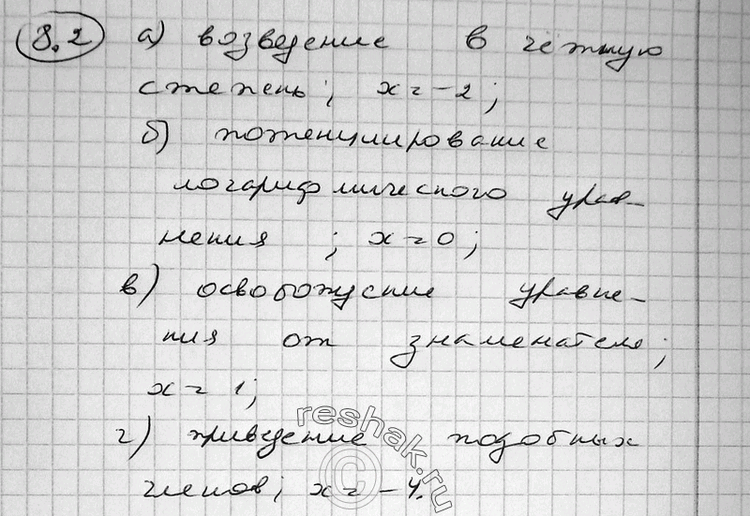 8.2 а) возведение в чётную
степень; x = -2;
б) потенцирование
логарифмического урав-
нения ; x = 0;
в) освобождение уравне-
ния от знаменателя;
x = 1;
reshak.ru
г) приведение подобных
©
членов; x = -4.